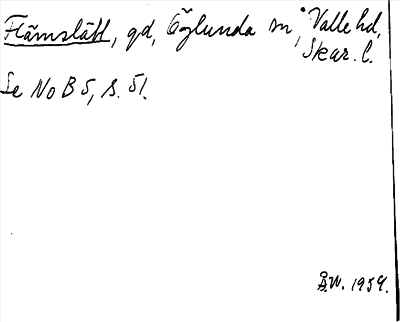 Flämslätt, gd, Öglunda sn, Valle hd,
Skar. l.
Se No B 5, s. 51.
Å.W. 1959.